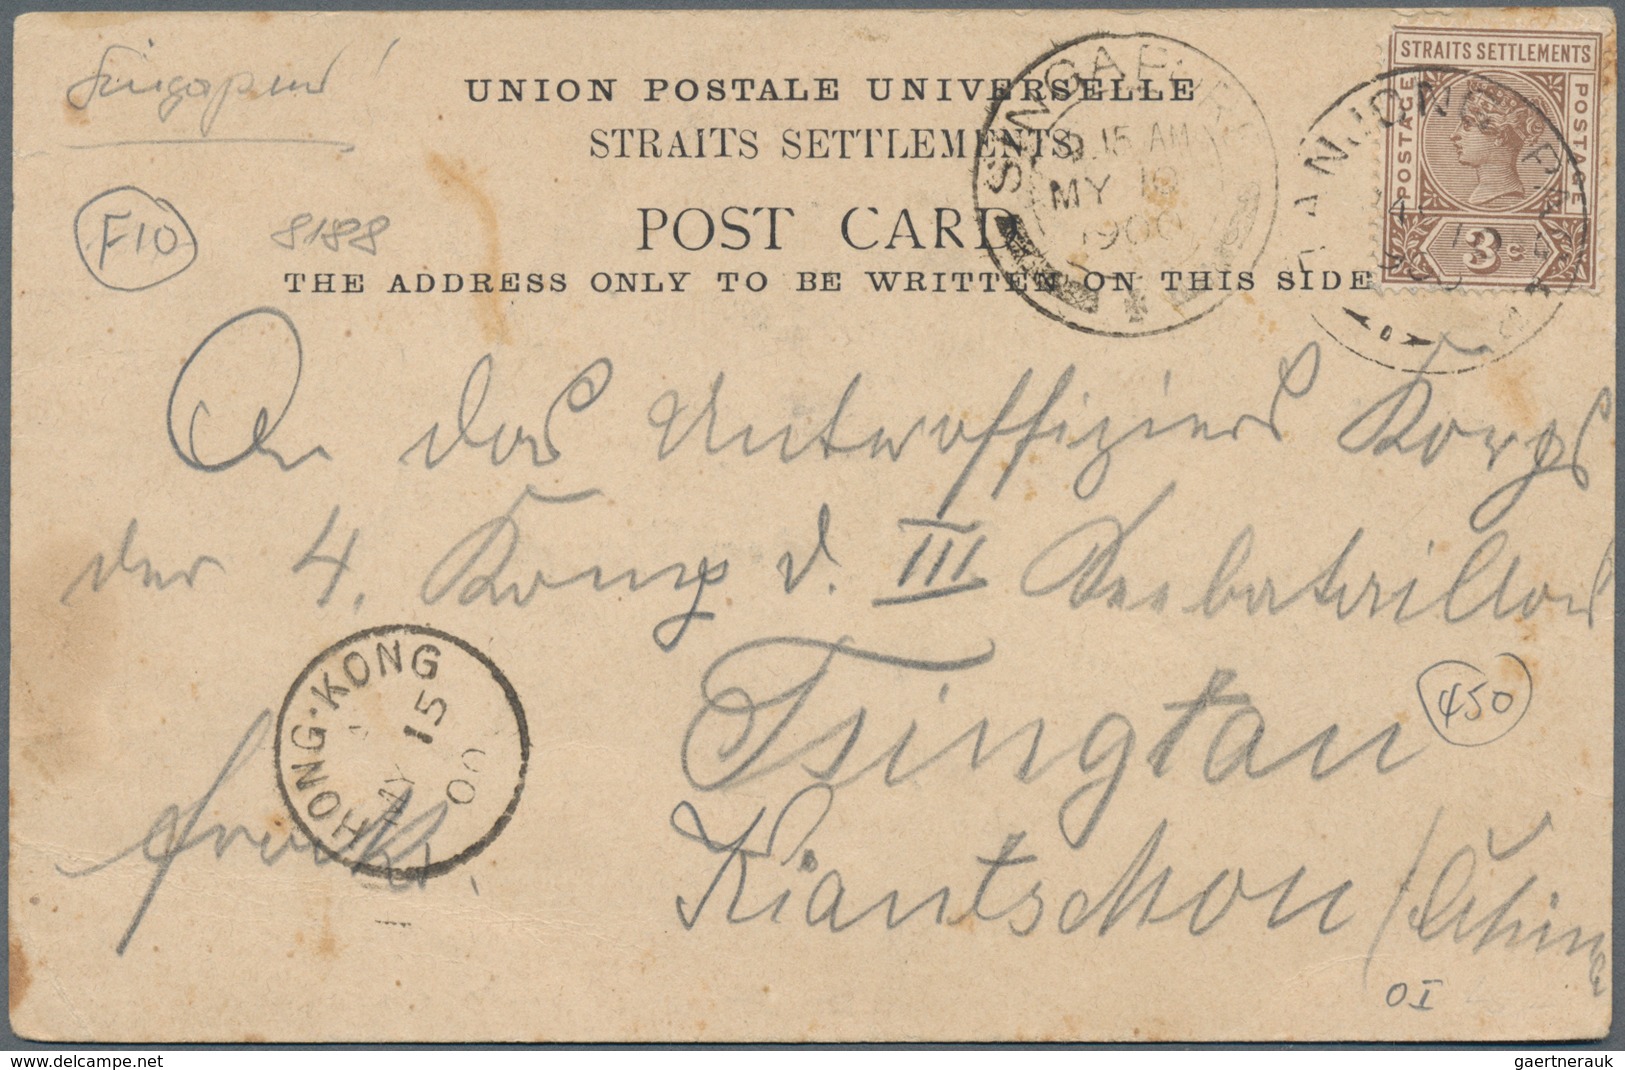 Singapur!
UNION POSTALE UNIVERSELLE
STRAITS SETTLEMENTS
POST CARD
THE ADDRESS ONLY TO BE WRITTEN ON THIS SIDE
SINGAPORE
9.15 AM
MY
1900
STRAITS SETTLEMENTS
POSTAGE
POSTAGE
3c
TANJONG PAGAR
D
F10
8188
An das Unteroffiziers Korps
der 4. Komp d. III Seebataillons
Tsingtau
450
HONG-KONG
MY 15
00
Kiautschou / China
OI
www.delcampe.net
gaertnerauk